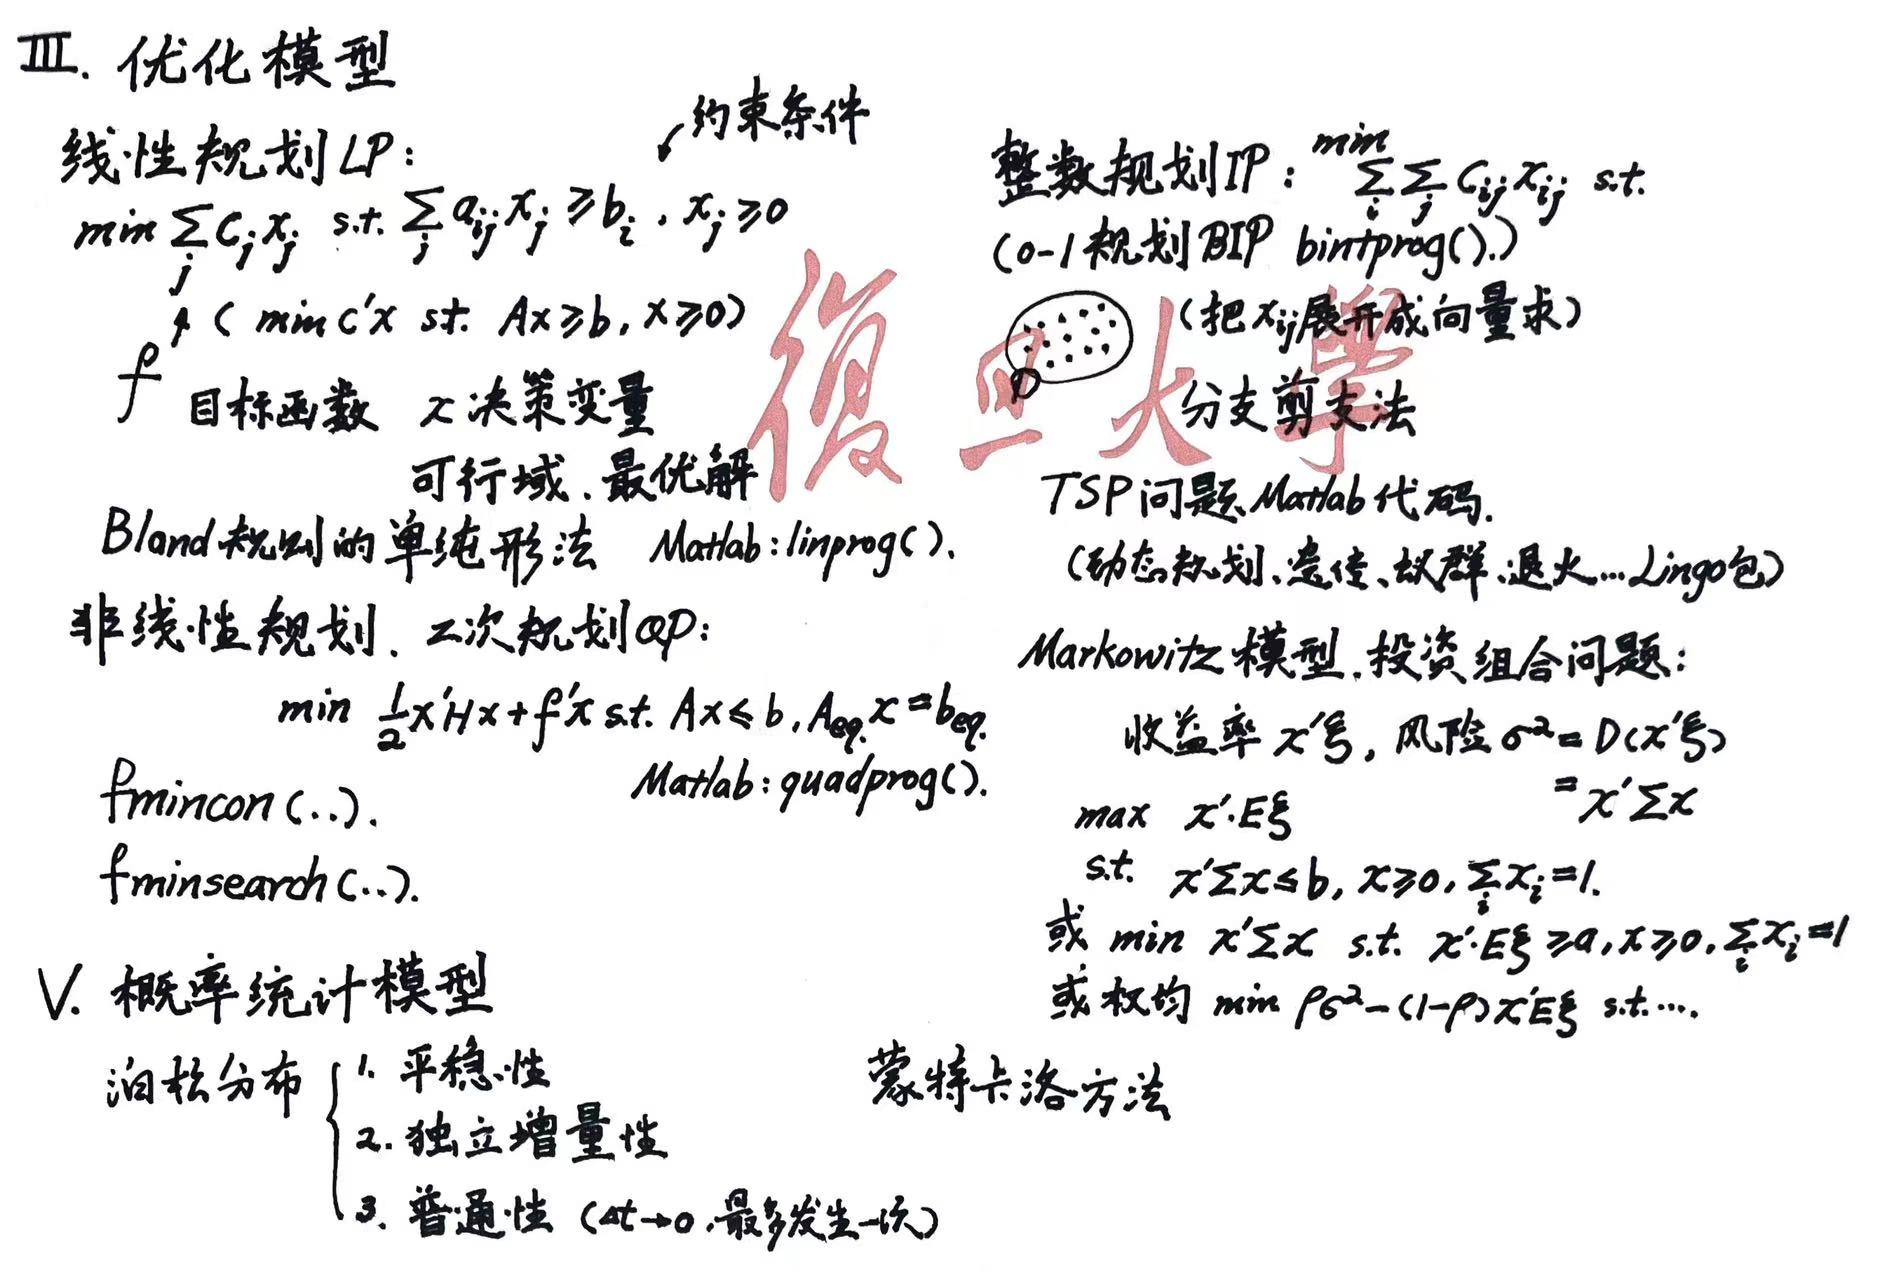 III. 优化模型
线性规划LP:
↙约束条件
min ∑_j c_j x_j s.t. ∑_j a_ij x_j ≥ b_i, x_j ≥ 0
(min c'x s.t. Ax ≥ b, x ≥ 0)
f 目标函数 x 决策变量
可行域、最优解
Bland规则的单纯形法 Matlab: linprog().
非线性规划、二次规划QP:
min ½x'Hx + f'x s.t. Ax ≤ b, A_eq. x = b_eq.
Matlab: quadprog().
fmincon(..).
fminsearch(..).
V. 概率统计模型
泊松分布 { 1. 平稳性
2. 独立增量性
3. 普通性 (Δt→0,最多发生一次)
整数规划IP: min ∑_i ∑_j c_ij x_ij s.t.
(0-1规划BIP bintprog().)
(把x_ij展开成向量求)
分支剪支法
TSP问题Matlab代码.
(动态规划、遗传、蚁群、退火...Lingo包)
Markowitz模型、投资组合问题:
收益率 x'ξ, 风险 σ² = D(x'ξ)
= x'Σx
max x'·Eξ
s.t. x'Σx ≤ b, x ≥ 0, ∑_i x_i = 1.
或 min x'Σx s.t. x'·Eξ ≥ a, x ≥ 0, ∑_i x_i = 1
或权均 min ρσ² - (1-ρ)x'Eξ s.t. ....
蒙特卡洛方法
復旦大學